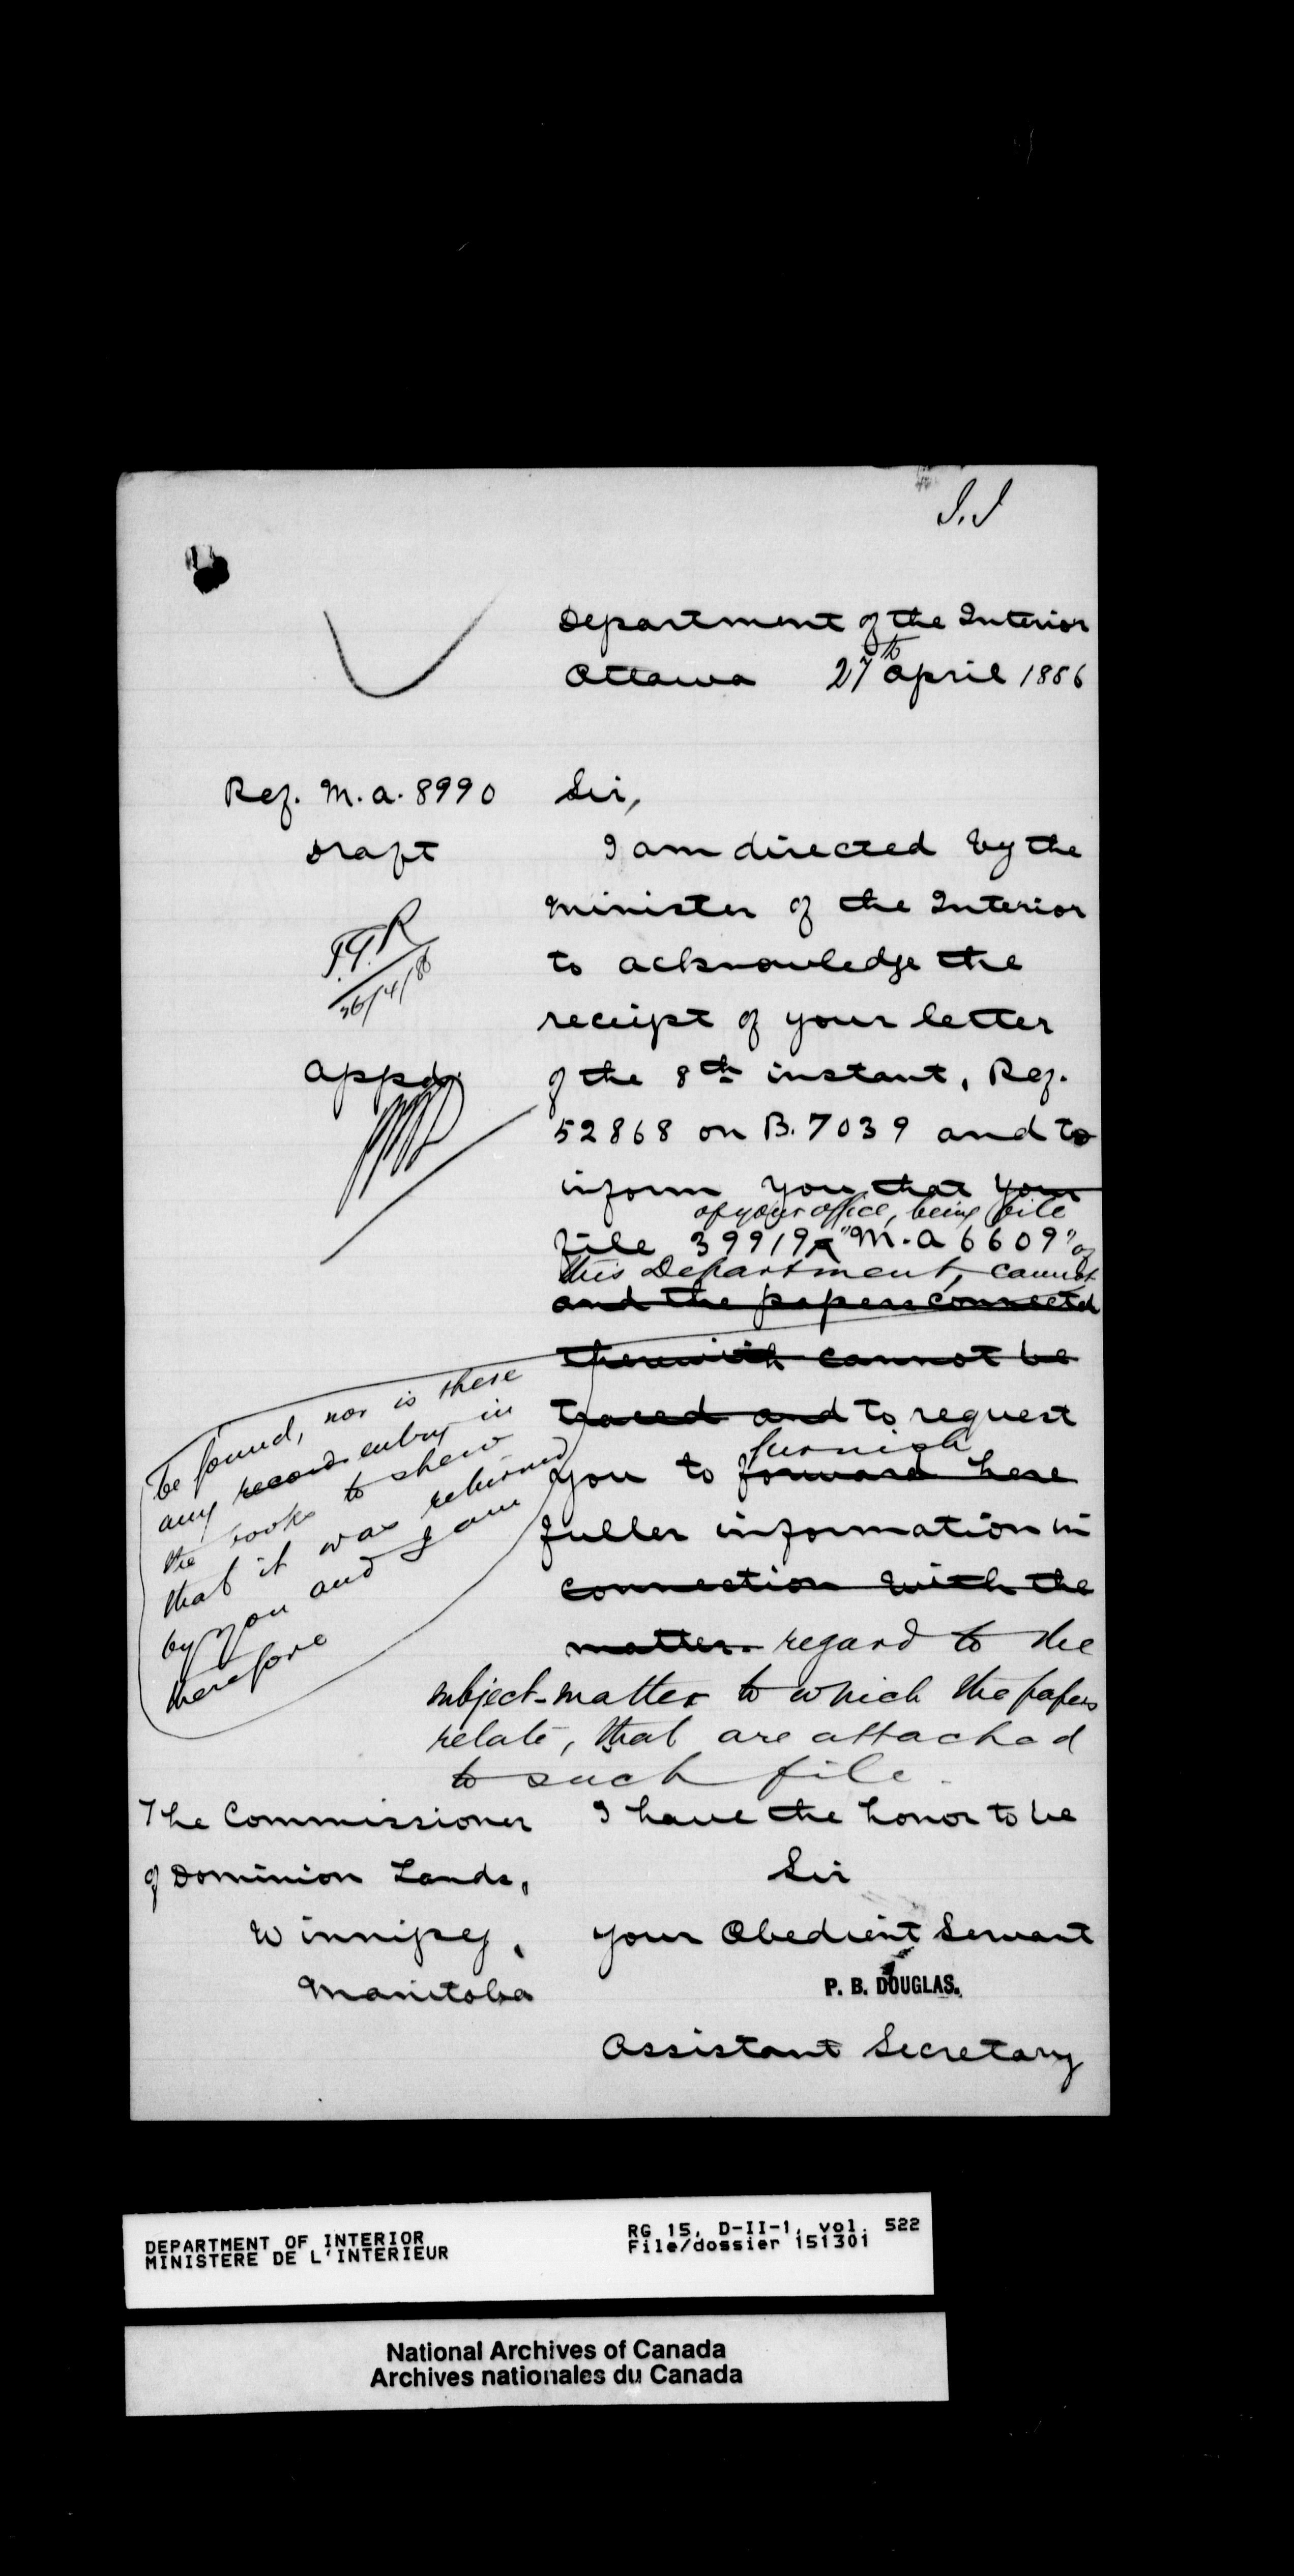 J.J
Department of the Interior
Ottawa 27th April 1886
Ref. M.A. 8990
Draft
26/4/86
Appd.
Sir,
I am directed by the
Minister of the Interior
to acknowledge the
receipt of your letter
of the 8th instant, Ref.
52868 on B. 7039 and to
inform you that your
of your office, being file
file 39919 "M.A 6609" of
this Department, cannot
and the papers connected
therewith cannot be
traced and to request
be found, nor is there
any record entry in
the books to shew
that it was returned
by you and I am
therefore
furnish
you to forward here
fuller information in
connection with the
matter. regard to the
subject-matter to which the papers
relate, that are attached
to such file.
I have the honor to be
Sir
Your Obedient Servant
P. B. DOUGLAS.
Assistant Secretary
The Commissioner
of Dominion Lands,
Winnipeg,
Manitoba
DEPARTMENT OF INTERIOR
MINISTERE DE L'INTERIEUR
RG 15, D-II-1, vol. 522
File/dossier 151301
National Archives of Canada
Archives nationales du Canada